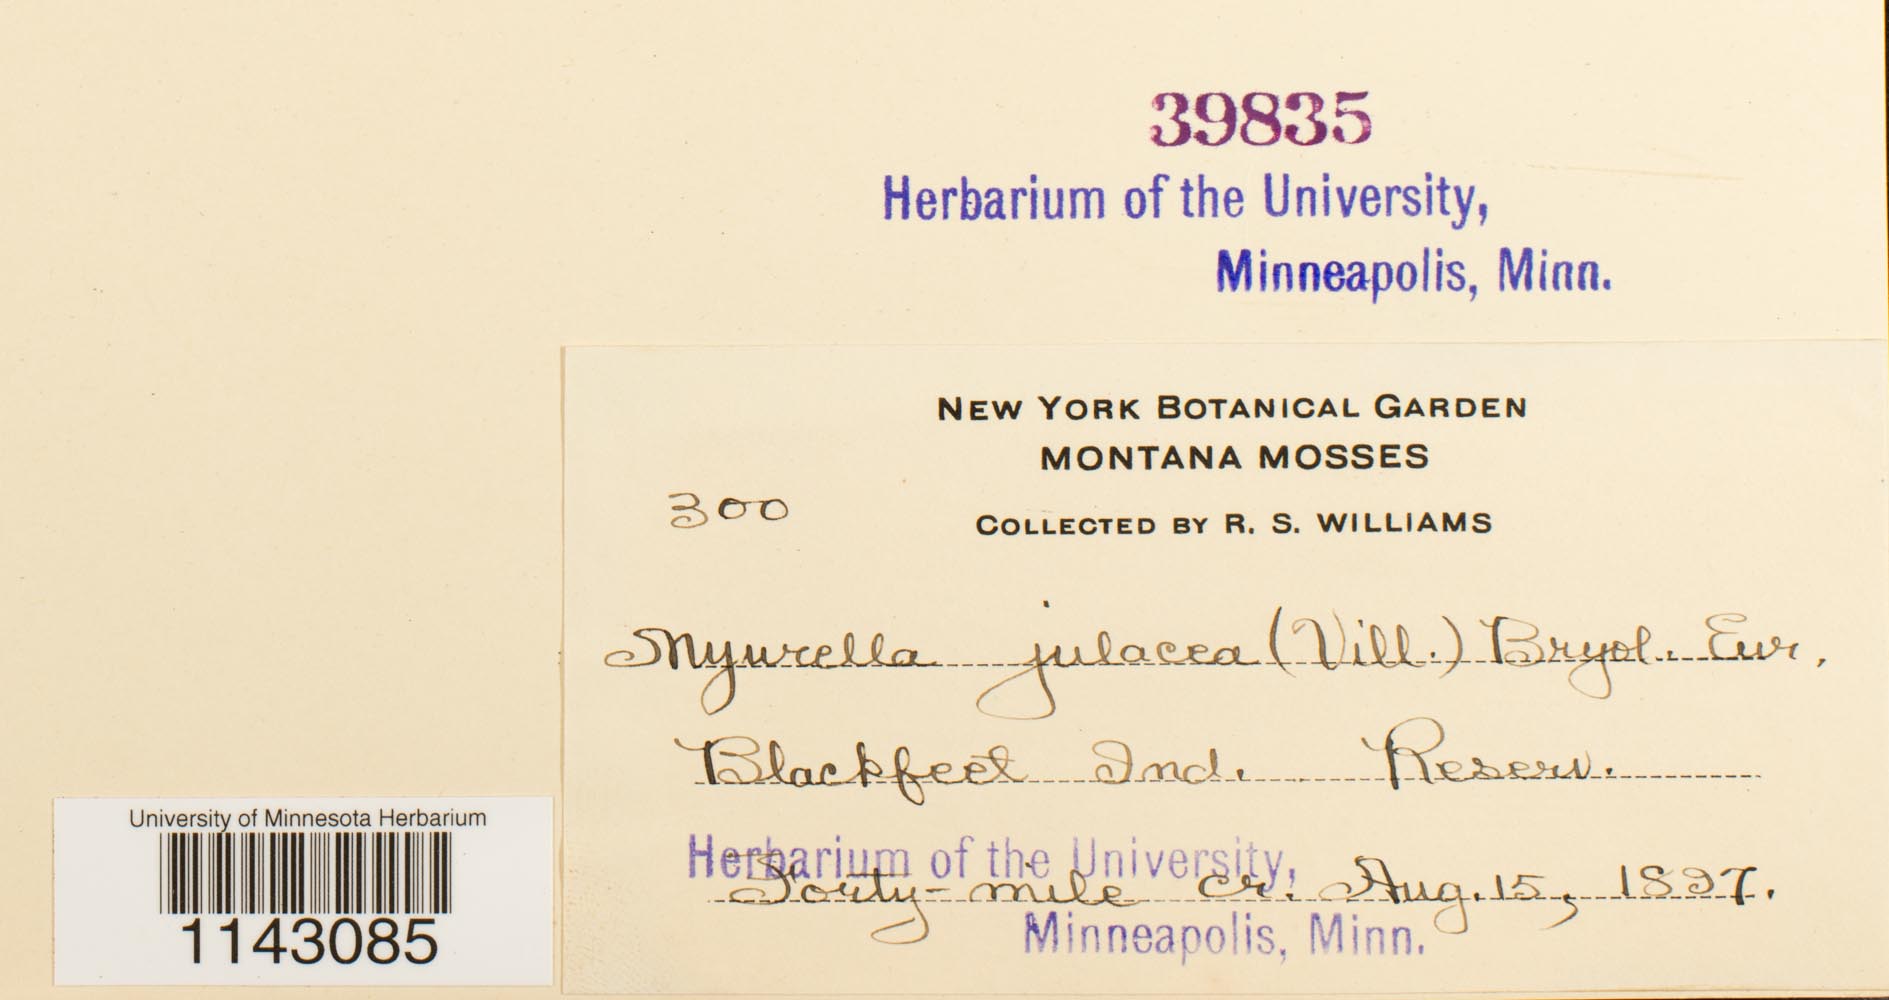 39835
Herbarium of the University,
Minneapolis, Minn.
NEW YORK BOTANICAL GARDEN
MONTANA MOSSES
300
COLLECTED BY R. S. WILLIAMS
Myurella julacea (Vill.) Bryol. Eur.
Blackfeet Ind. Reserv.
Herbarium of the University,
Forty-mile cr. Aug. 15, 1897.
Minneapolis, Minn.
University of Minnesota Herbarium
1143085